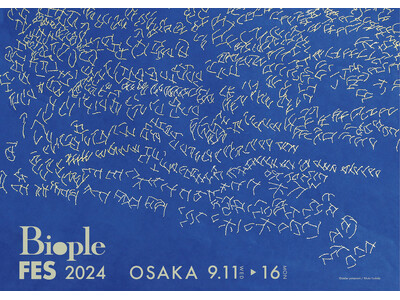 Biople
FES 2024 OSAKA 9.11 WED ▶ 16 MON